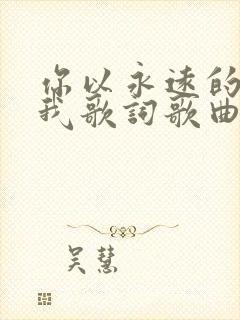 你以永遠的
我歌詞歌曲
吴慧